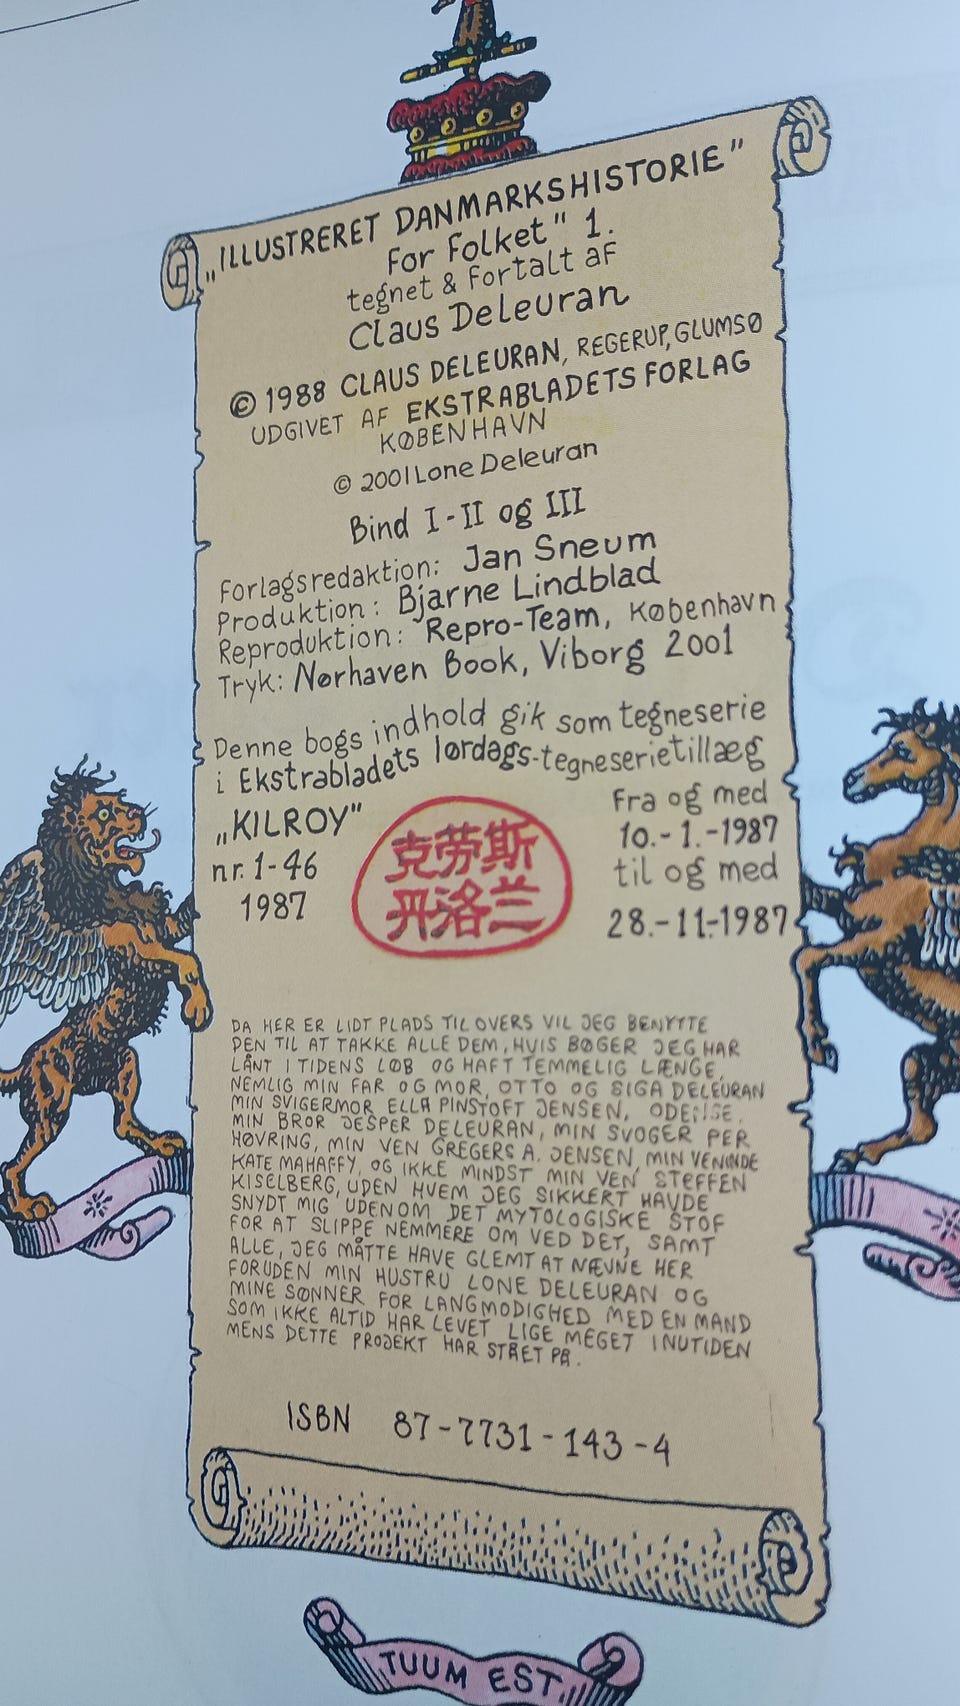 „ILLUSTRERET DANMARKSHISTORIE"
For Folket" 1.
tegnet & Fortalt aF
Claus Deleuran
© 1988 CLAUS DELEURAN, REGERUP, GLUMSØ
UDGIVET AF EKSTRABLADETS FORLAG
KØBENHAVN
© 2001 Lone Deleuran
Bind I-II og III
Forlagsredaktion: Jan Sneum
Produktion: Bjarne Lindblad
Reproduktion: Repro-Team, København
Tryk: Nørhaven Book, Viborg 2001
Denne bogs indhold gik som tegneserie
i Ekstrabladets lørdags-tegneserietillæg
„KILROY"
nr. 1-46
1987
克劳斯
丹洛兰
Fra og med
10.-1.-1987
til og med
28.-11-1987
DA HER ER LIDT PLADS TIL OVERS VIL JEG BENYTTE
DEN TIL AT TAKKE ALLE DEM, HVIS BØGER JEG HAR
LÅNT I TIDENS LØB OG HAFT TEMMELIG LÆNGE,
NEMLIG MIN FAR OG MOR, OTTO OG SIGA DELEURAN
MIN SVIGERMOR ELLA PINSTOFT JENSEN, ODENSE,
MIN BROR JESPER DELEURAN, MIN SVOGER PER
HØVRING, MIN VEN GREGERS A. JENSEN, MIN VENINDE
KATE MAHAFFY, OG IKKE MINDST MIN VEN STEFFEN
KISELBERG, UDEN HVEM JEG SIKKERT HAVDE
SNYDT MIG UDENOM DET MYTOLOGISKE STOF
FOR AT SLIPPE NEMMERE OM VED DET, SAMT
ALLE, JEG MÅTTE HAVE GLEMT AT NÆVNE HER
FORUDEN MIN HUSTRU LONE DELEURAN OG
MINE SØNNER FOR LANGMODIGHED MED EN MAND
SOM IKKE ALTID HAR LEVET LIGE MEGET I NUTIDEN
MENS DETTE PROJEKT HAR STÅET PÅ.
ISBN 87-7731-143-4
TUUM EST